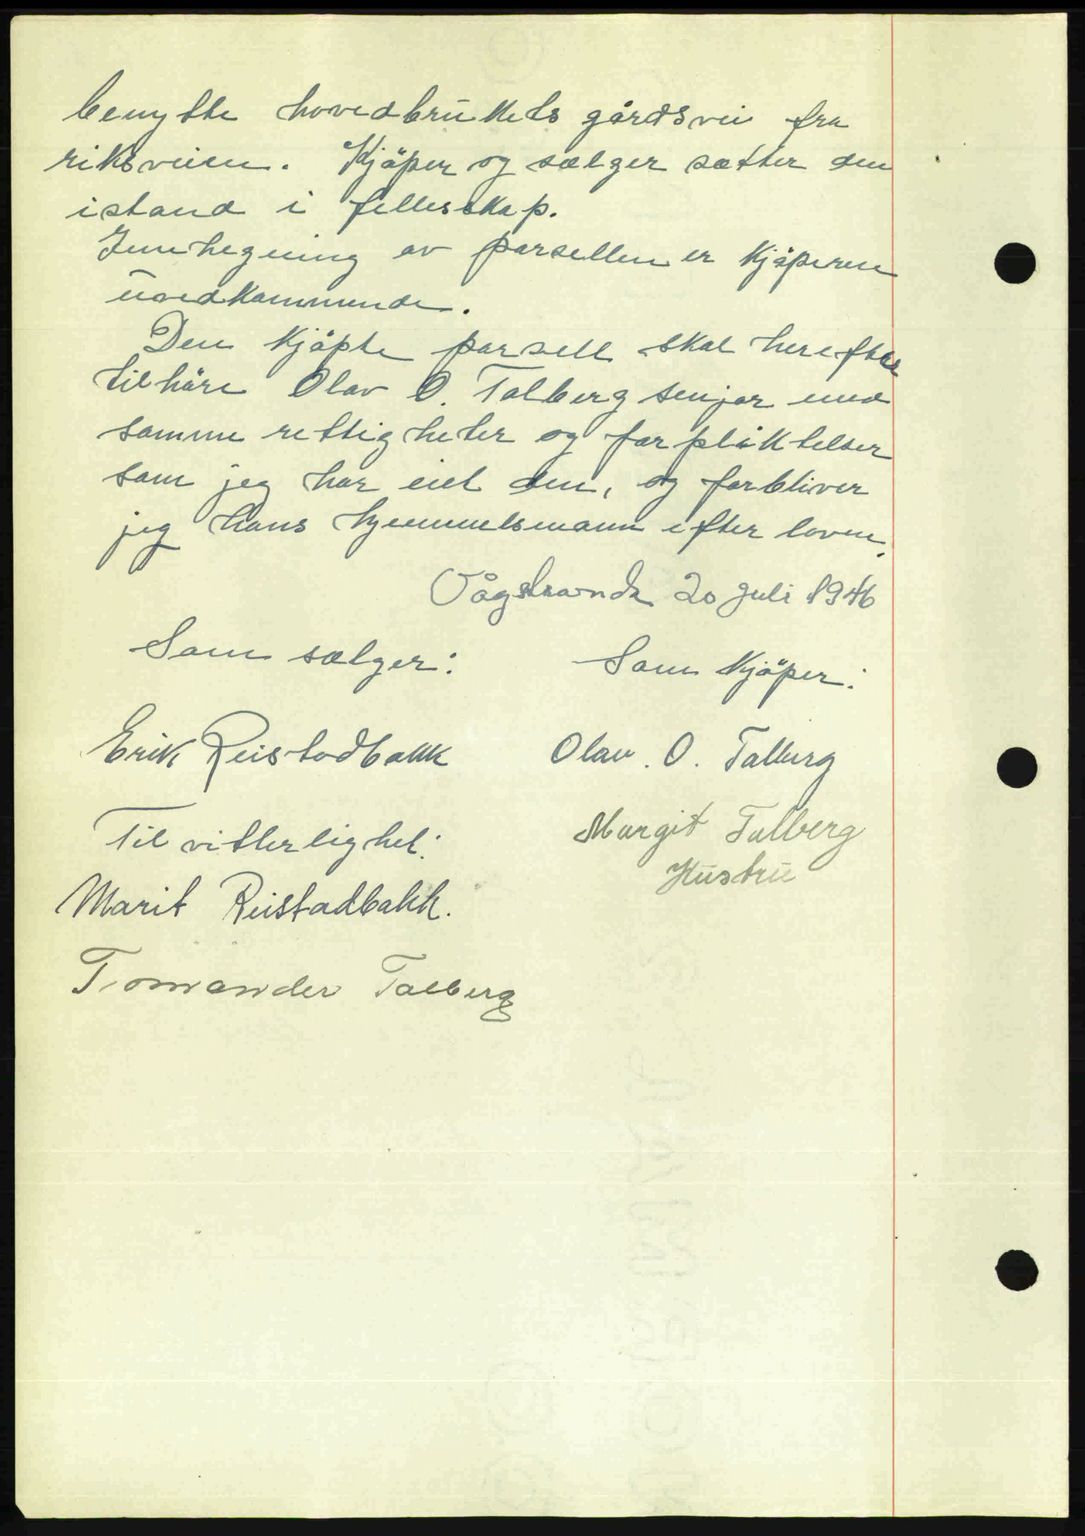 benytte hovedbrukets gårdsvei fra
riksveien. Kjöper og sælger sætter den
istand i fellesskap.
Innhegning av parsellen er kjöperen
uvedkommende.
Den kjöpte parsell skal herefter
tilhöre Olav O. Talberg senjor med
samme rettigheter og forpliktelser
som jeg har eiet den, og forbliver
jeg hans hjemmelsmann efter loven.
Vågstranda 20 juli 1946
Som sælger: Som kjöper:
Erik Reistadbakk Olav. O. Talberg
Til vitterlighet: Margit Talberg
Hustru
Marit Reistadbakk.
Talberg